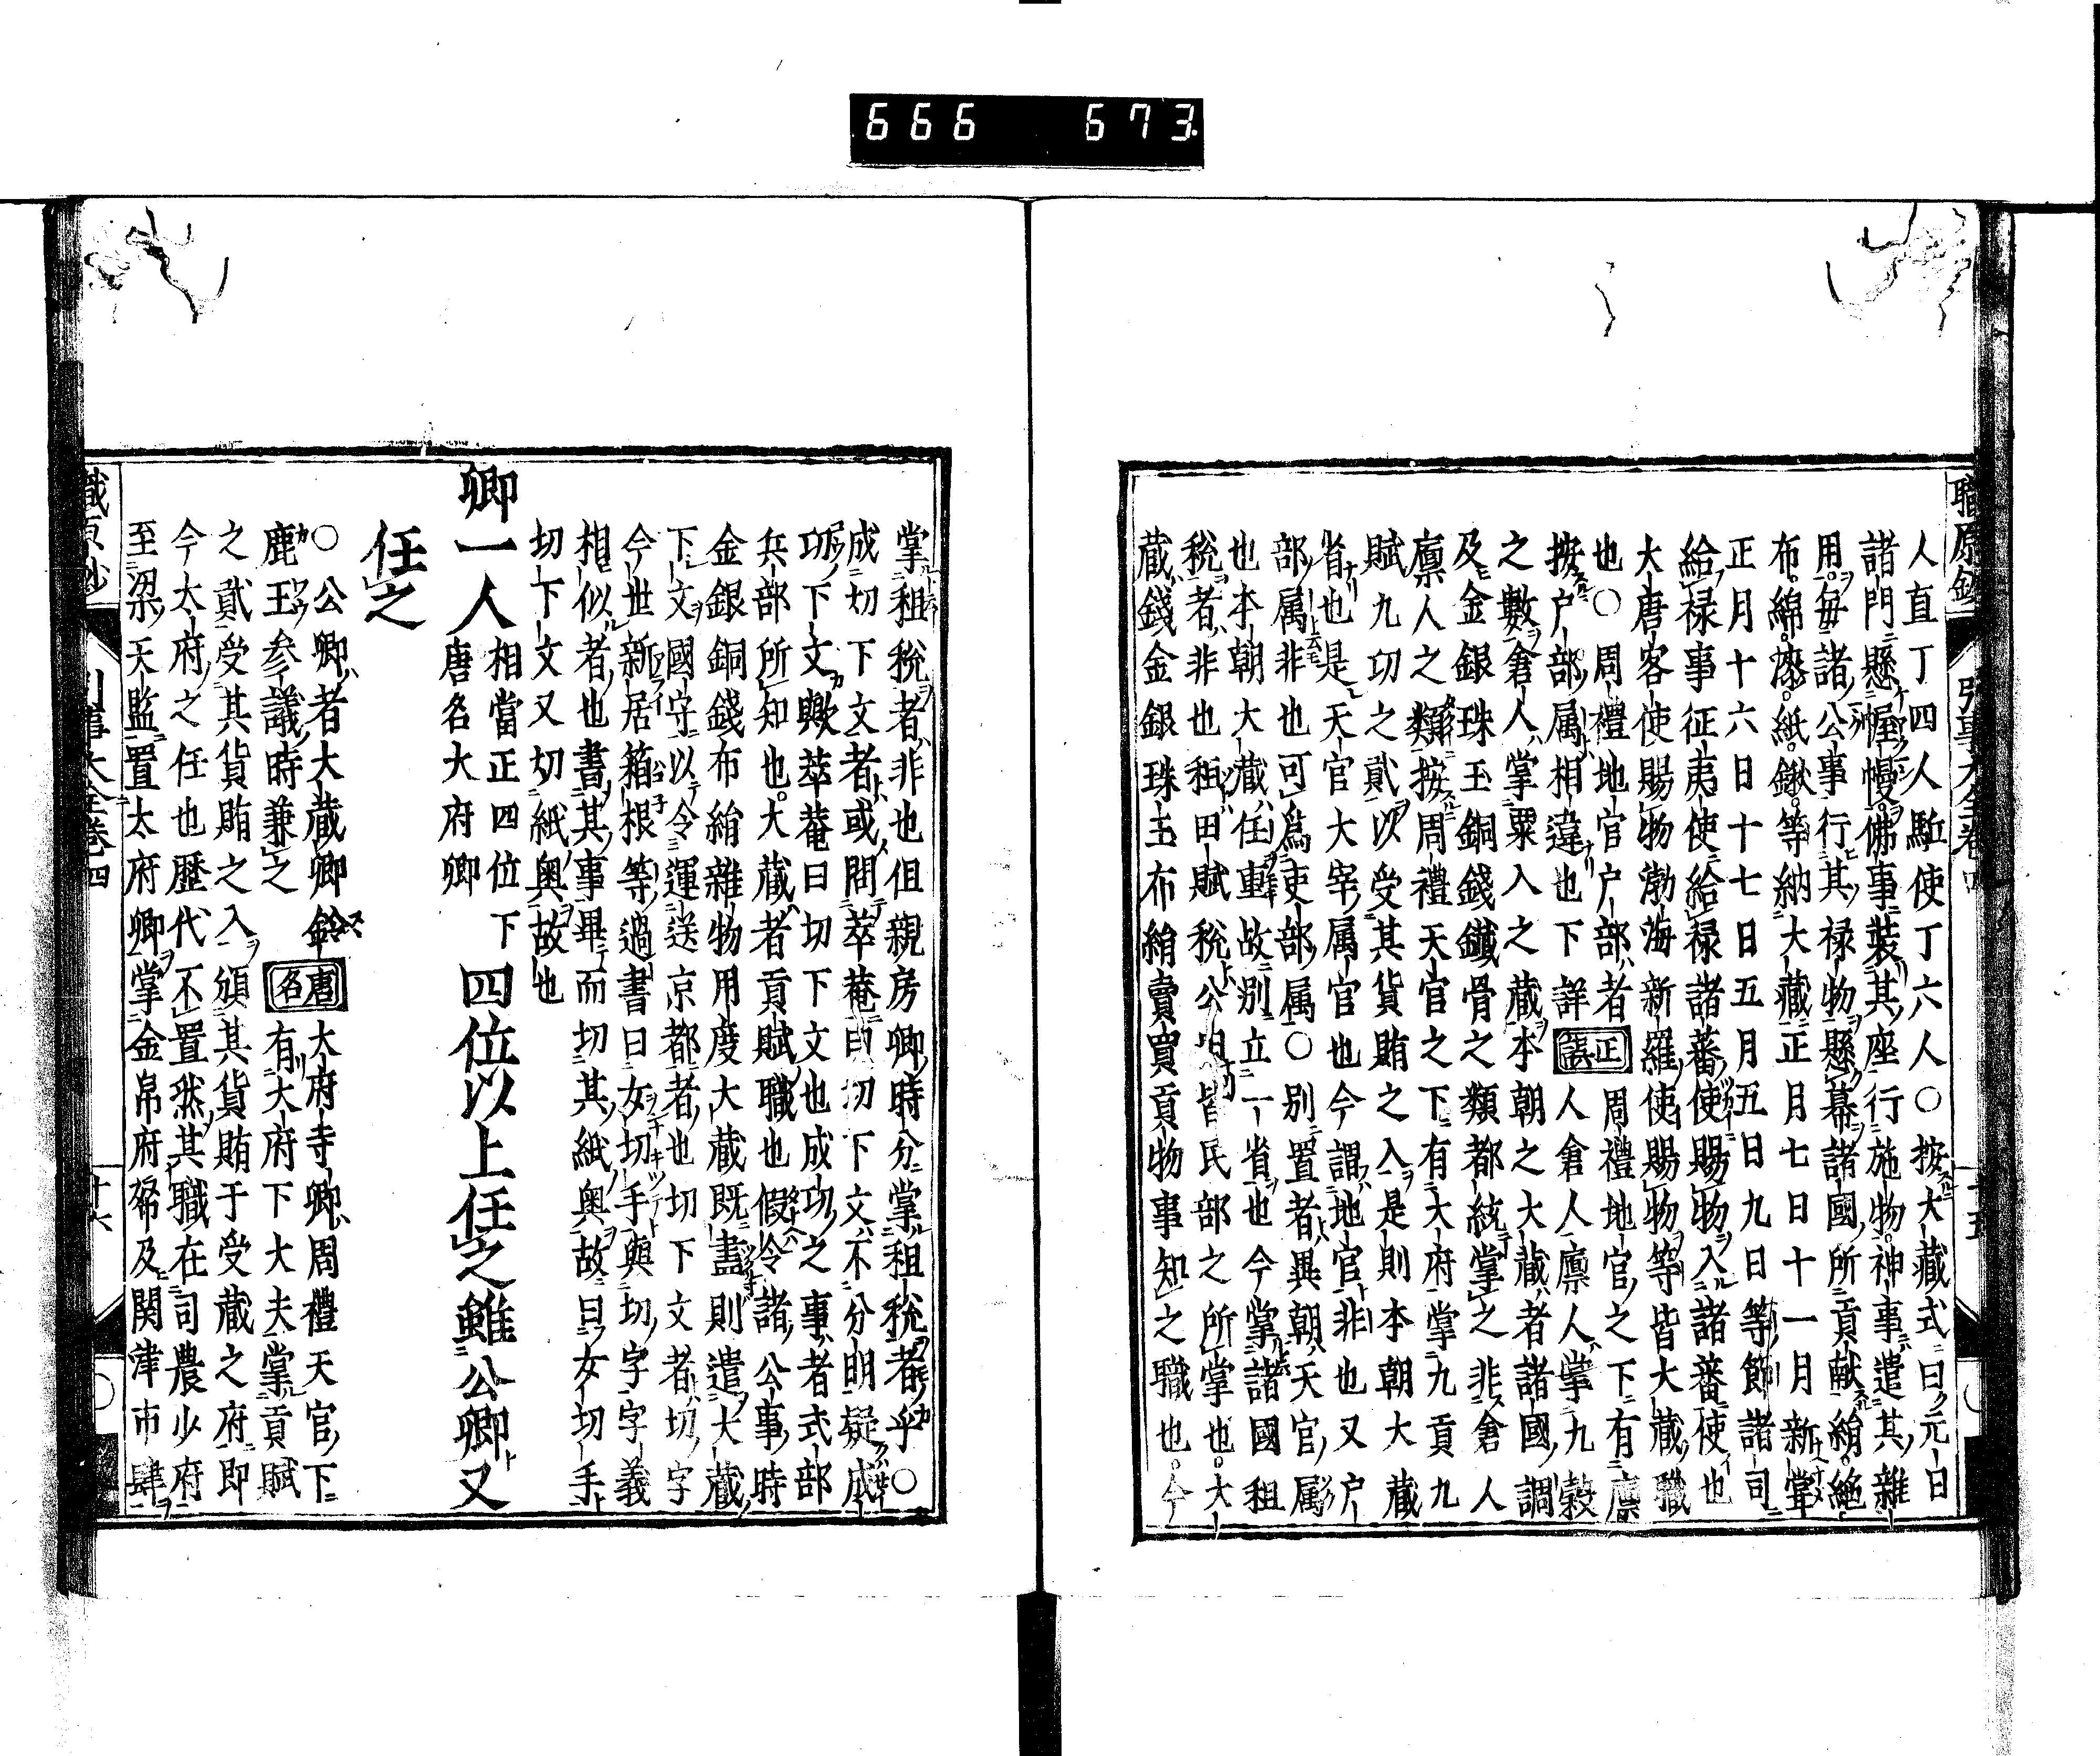 666 673
職原鈔 引事大全卷四
人直丁四人駈使丁六人○按大藏式曰元日
諸門懸幄幔佛事裝其座行施物神事遣其雜
用毎諸公事行其禄物懸幕諸國所貢献絹絁
布綿漆紙鍬等納大藏正月七日十一月新甞
正月十六日十七日五月五日九日等節諸司
給禄事征夷使給禄諸蕃使賜物入諸蕃使也
大唐客使賜物渤海新羅使賜物等皆大藏職
也○周禮地官户部者正誤周禮地官之下有廪
按户部属相違也下詳人倉人廪人掌九穀
之數倉人掌粟入之藏本朝之大藏者諸國調
及金銀珠玉銅錢鐵骨之類都統掌之非倉人
廪人之類按周禮天官之下有大府掌九貢九
賦九功之貳以受其貨賄之入是則本朝大藏
省也是天官大宰属官也今謂地官非也又户
部属非也可為吏部属○別置者異朝天官属
也本朝大藏任重故別立一省也今掌諸國租
税者非也租田賦税公皆民部之所掌也大
藏錢金銀珠玉布絹賣買貢物事知之職也今
掌租税者非也但親房卿時分掌租税者乎○
成切下文者或問萃菴曰切下文不分明疑成
功下文歟萃菴曰切下文也成功之事者式部
兵部所知也大藏者貢賦職也假令諸公事時
金銀銅錢布絹雜物用度大藏既盡則遣大藏
下文國守以令運送京都者也切下文者切字
今世新居箱根等過書曰女切手與切字字義
相似者也書其事畢而切其紙奥故曰女切手
切下文又切紙奥故也
卿一人 相當正四位下 唐名大府卿 四位以上任之雖公卿又
任之
○公卿者大藏卿幹唐名大府寺卿周禮天官下
鹿王参議時兼之有大府下大夫掌貢賦
之貳受其貨賄之入頒其貨賄于受藏之府即
今大府之任也歴代不置然其職在司農少府
至梁天監置太府卿掌金帛府帑及関津市肆
職原鈔 引事大全卷四 十六